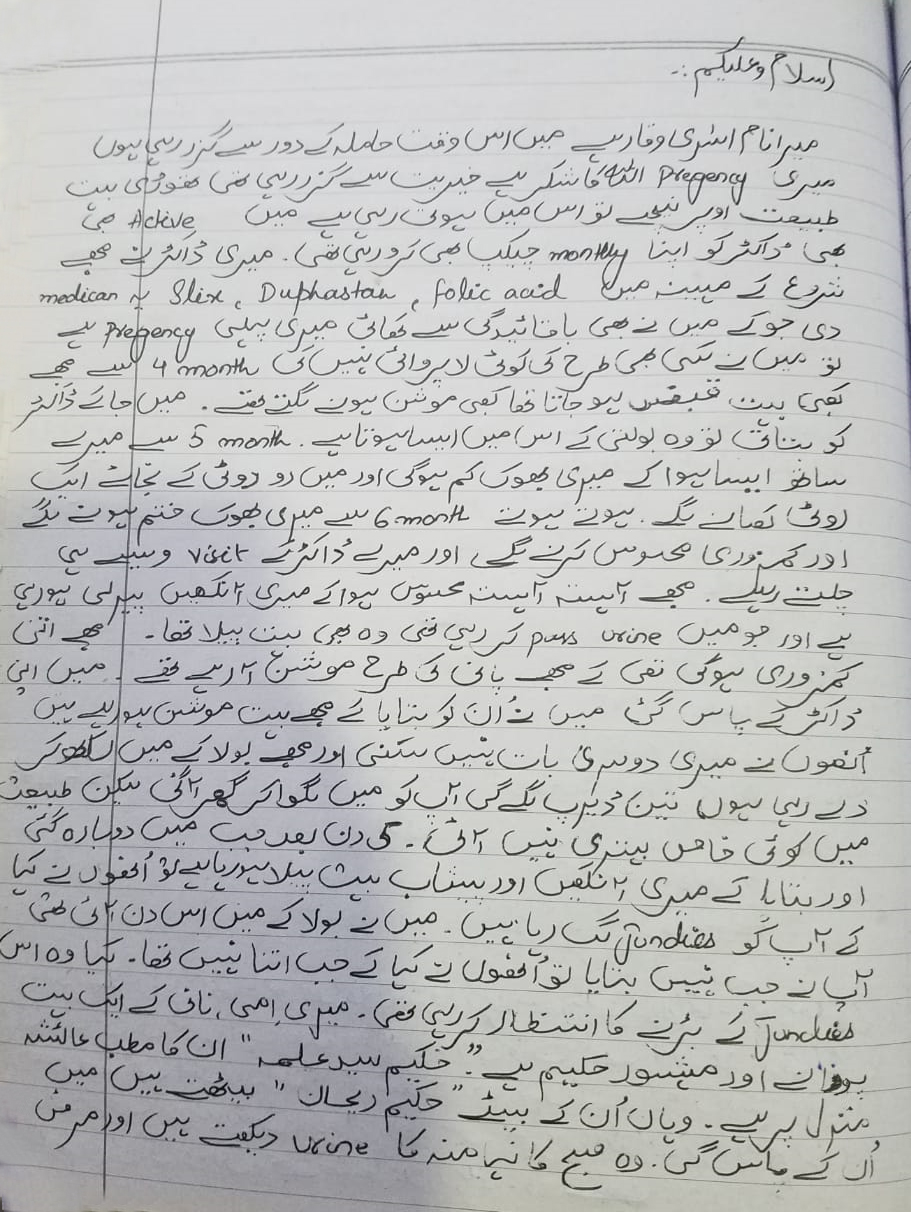 اسلام و علیکم :۔
میرا نام اسریٰ وقار ہے میں اس وقت حاملہ کے دور سے گزر رہی ہوں
میری Pregency اللہ کا شکر ہے خیریت سے گزر رہی تھی تھوڑی بہت
طبیعت اوپر نیچے تو اس میں ہوتی رہی ہے میں Active بھی تھی
بھی ڈاکٹر کو اپنا monthly چیکپ بھی کرو رہی تھی۔ میری ڈاکٹر نے مجھے
شروع کے مہینہ میں folic acid ، Duphastan ، Slix یہ medican
دی جو کے میں نے بھی باقائیدگی سے کھائی میری پہلی Pregency ہے
تو میں نے کسی بھی طرح کی کوئی لاپروائی نہیں کی 4 month سے مجھے
کبھی بہت قبض ہو جاتا تھا کبھی موشن ہونے لگتے تھے۔ میں جا کے ڈاکٹر
کو بتاتی تو وہ بولتی کے اس میں ایسا ہوتا ہے۔ 5 month سے میرے
ساتھ ایسا ہوا کے میری بھوک کم ہوگی اور میں دو روٹی کے بجائے ایک
روٹی کھانے لگے۔ ہوتے ہوتے 6 month سے میری بھوک ختم ہونے لگے
اور کمزوری محسوس کرنے لگے اور میرے ڈاکٹر کے visit ویسے ہی
چلتے رہے۔ مجھے آہستہ آہستہ محسوس ہوا کے میری آنکھیں پیلی ہورہی
ہے اور جو میں pass urine کر رہی تھی وہ بھی بہت پیلا تھا۔ مجھے اتنی
کمزوری ہوگی تھی کے مجھے پانی کی طرح موشن آرہے تھے۔ میں اپنی
ڈاکٹر کے پاس گئی میں نے اُن کو بتایا کے مجھے بہت موشن ہورہے ہیں
اُنھوں نے میری دوسری بات نہیں سنی اور مجھے بولا کے میں لکھ کر
دے رہی ہوں تین ڈرپ لگے گی آپ کو میں لگوا کر گھر آگئی لیکن طبیعت
میں کوئی خاص بہتری نہیں آئی۔ 5 دن بعد جب میں دوبارہ گئی
اور بتایا کے میری آنکھیں اور پیشاب بہت پیلا ہورہا ہے تو اُنھوں نے کہا
کے آپ کو Jundies لگ رہا ہیں۔ میں نے بولا کے میں اس دن آئی تھی
آپ نے جب نہیں بتایا تو اُنھوں نے کہا کے جب اتنا نہیں تھا۔ کیا وہ اس
Jundies کے بڑنے کا انتظار کررہی تھی۔ میری امی، نانی کے ایک بہت
پورانے اور مشہور حکیم ہے۔ "حکیم سید علمہ" ان کا مطب عائشہ
منزل پر ہے۔ وہاں اُن کے بیٹے "حکیم ریحان" بیٹھتے ہیں میں
اُن کے پاس گی۔ وہ صبح کا نہر منہ کا urine دیکھتے ہیں اور مرض